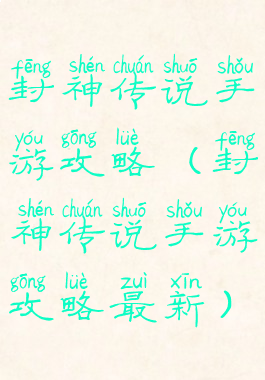 fēng shén chuán shuō shǒu
封神传说手
yóu gōng lüè fēng
游攻略（封
shén chuán shuō shǒu yóu
神传说手游
gōng lüè zuì xīn
攻略最新）